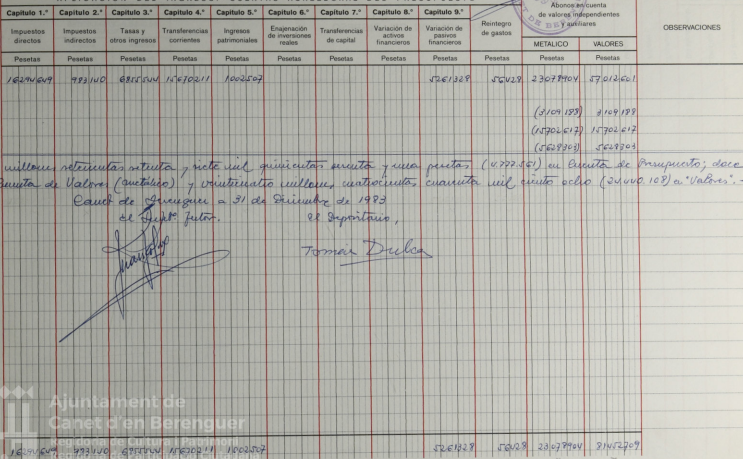 Capítulo 1.° Capítulo 2.° Capítulo 3.° Capítulo 4.° Capítulo 5.° Capítulo 6.° Capítulo 7.° Capítulo 8.° Capítulo 9.°
Impuestos directos
Impuestos indirectos
Tasas y otros ingresos
Transferencias corrientes
Ingresos patrimoniales
Enajenación de inversiones reales
Transferencias de capital
Variación de activos financieros
Variación de pasivos financieros
Reintegro de gastos
Abonos en cuenta
de valores independientes
y auxiliares
METALICO VALORES
OBSERVACIONES
Pesetas Pesetas Pesetas Pesetas Pesetas Pesetas Pesetas Pesetas Pesetas Pesetas Pesetas Pesetas
16294649 993140 6955544 15670211 1002507 5261328 56428 23078904 57.012.601
(3109188) 3109188
(15702617) 15702617
(5628303) 5628303
millones setecientas setenta y siete mil quinientas sesenta y una pesetas (4.777.561) en Cuenta de Presupuesto; doce
Cuenta de Valores (metálico) y veinticuatro millones, cuatrocientas cuarenta mil ciento ocho (24.440.108) a "Valores". -
Canet de Berenguer a 31 de Diciembre de 1983
El Depositario,
Tomás Dulca
Ajuntament de
Canet d'en Berenguer
Regidoria de Cultura i Patrimoni
16294649 993140 6955544 15670211 1002507 5261328 56428 23078904 81452709